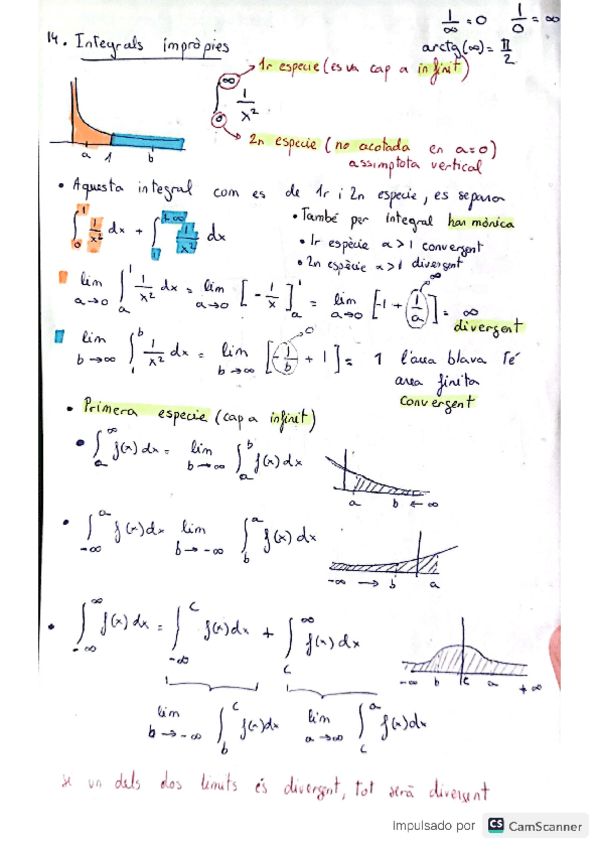 1/∞ = 0   1/0 = ∞
arctg(∞) = π/2
14. Integrals impròpies
1r especie (es va cap a infinit)
∫ ∞ 0 1/x²
2n especie (no acotada en a=0)
assimptota vertical
a 1 b
• Aquesta integral com es de 1r i 2n especie, es separa
∫₀¹ 1/x² dx + ∫₁^{+∞} 1/x² dx
• També per integral harmònica
• 1r espècie α>1 convergent
• 2n espècie α>1 divergent
lim a→0 ∫ₐ¹ 1/x² dx = lim a→0 [-1/x]ₐ¹ = lim a→0 [-1 + 1/a] = ∞
∞
divergent
lim b→∞ ∫₁ᵇ 1/x² dx = lim b→∞ [-1/b + 1] = 1 l'àrea blava té
0
area finita
convergent
• Primera especie (cap a infinit)
• ∫ₐ^∞ f(x) dx = lim b→∞ ∫ₐᵇ f(x) dx
a b ← ∞
• ∫_{-∞}^a f(x) dx lim b→-∞ ∫_b^a f(x) dx
-∞ → b a
• ∫_{-∞}^∞ f(x) dx = ∫_{-∞}^c f(x) dx + ∫_c^∞ f(x) dx
-∞ b c a +∞
lim b→-∞ ∫_b^c f(x) dx   lim a→∞ ∫_c^a f(x) dx
se un dels dos limits és divergent, tot serà divergent
Impulsado por CS CamScanner